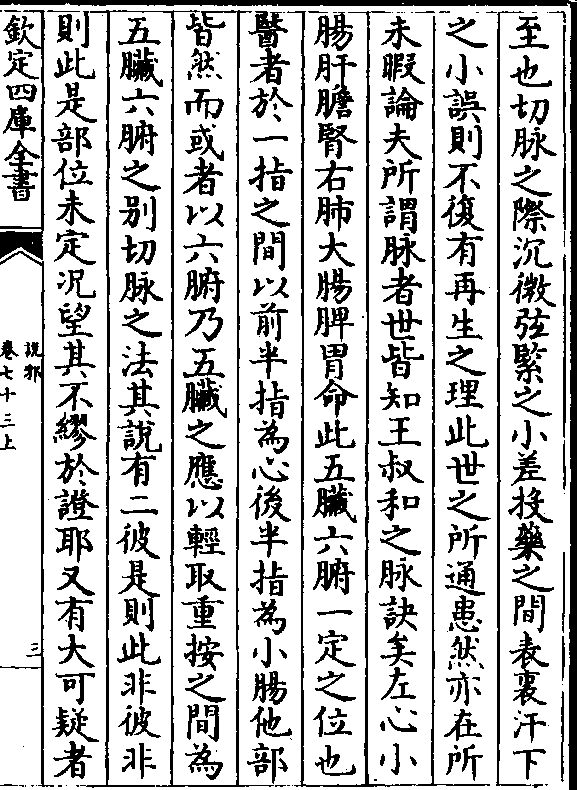 至也切脉之際沉微弦緊之小差投藥之間表裏汗下
之小誤則不復有再生之理此世之所通患然亦在所
未暇論夫所謂脉者世皆知王叔和之脉訣矣左心小
腸肝膽腎右肺大腸脾胃命此五臟六腑一定之位也
醫者於一指之間以前半指為心後半指為小腸他部
皆然而或者以六腑乃五臟之應以輕取重按之間為
五臟六腑之别切脉之法其說有二彼是則此非彼非
則此是部位未定况望其不繆於證耶又有大可疑者
欽定四庫全書
說郛
卷七十三上
三